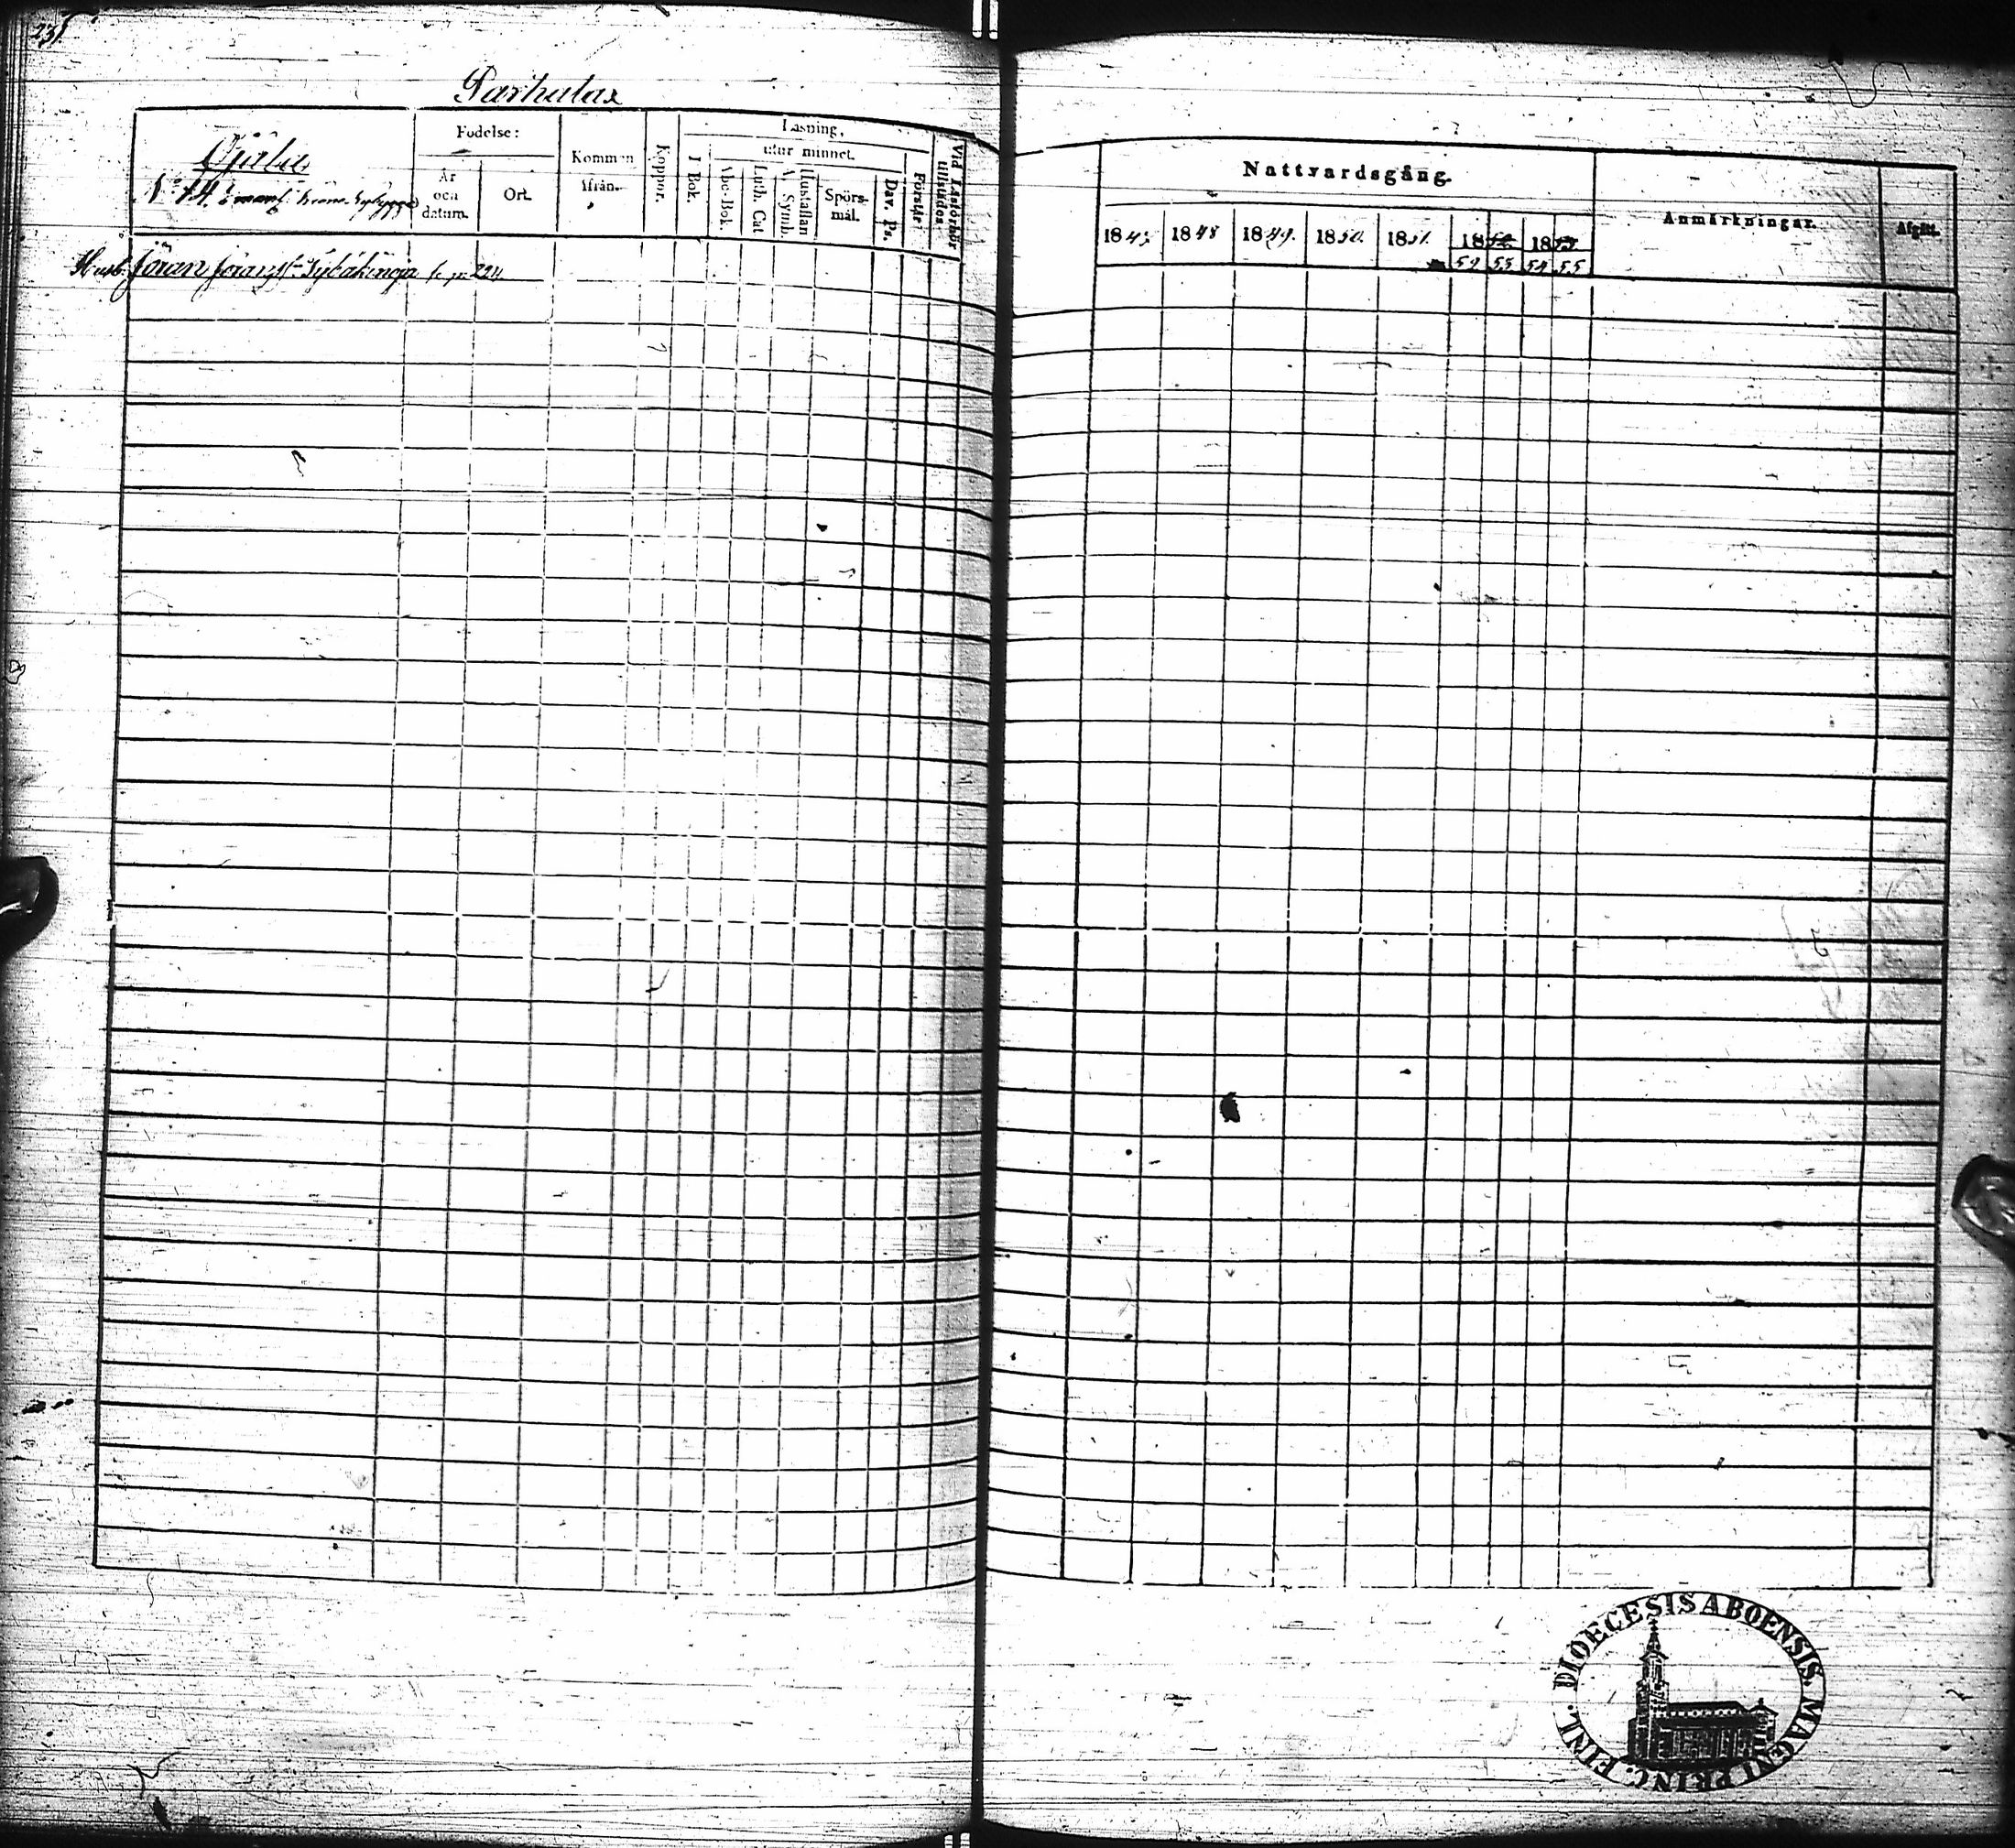 231
Parhalax
Ojala
N:o 14.
Fodelse:
År och datum.
Ort.
Kommen ifrån.
Koppor.
Läsning,
I Bok.
utur minnet.
Abc-Bok.
Luth. Cat
A. Symb.
Hustaflan
Spörs-mål.
Dav. Ps.
Förstår
Vid Läsförhör tillstädes.
Husb. Jöran Jöransson
Nattvardsgång.
1847. 1848 1849. 1850. 1851. 1852 1853
52 53 54 55
Anmärkningar.
Afgått.
DIOECESIS ABOENSIS. MAGNI PRINC. FINL.